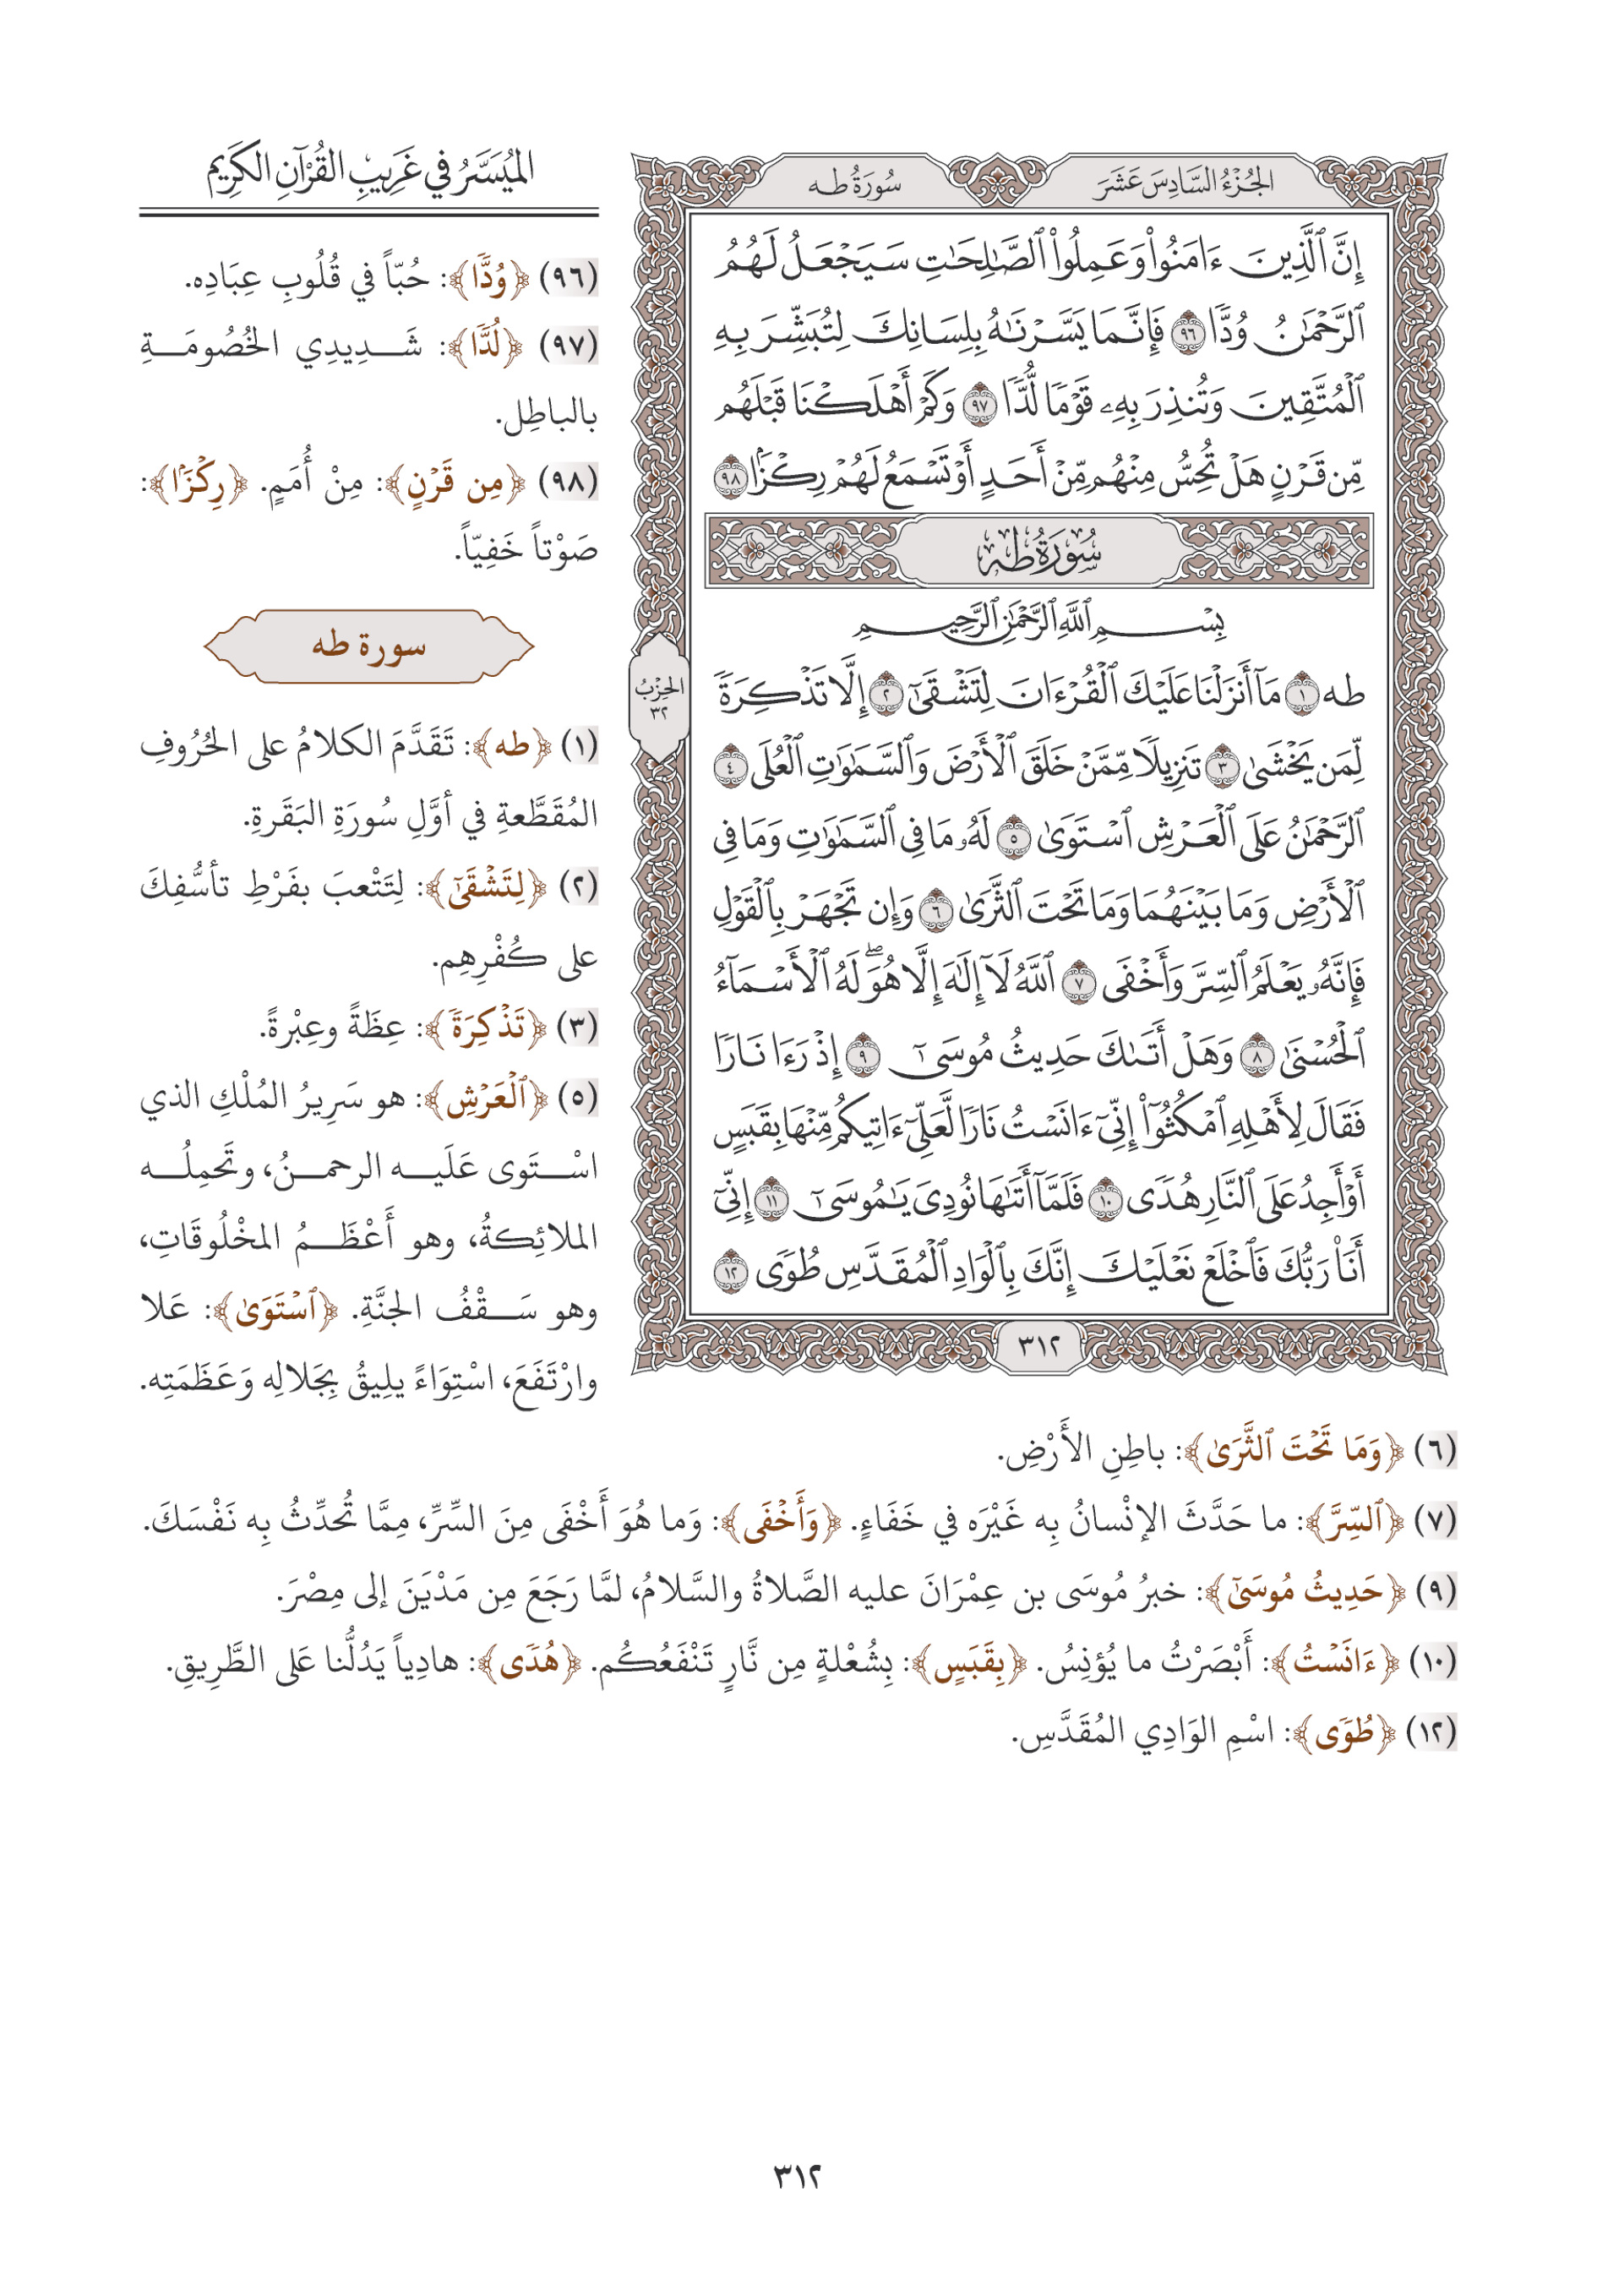 الجُزْءُ السَّادِسَ عَشَرَ
سُورَةُ طه
إِنَّ ٱلَّذِينَ ءَامَنُوا۟ وَعَمِلُوا۟ ٱلصَّٰلِحَٰتِ سَيَجْعَلُ لَهُمُ
ٱلرَّحْمَٰنُ وُدًّا ٩٦ فَإِنَّمَا يَسَّرْنَٰهُ بِلِسَانِكَ لِتُبَشِّرَ بِهِ
ٱلْمُتَّقِينَ وَتُنذِرَ بِهِۦ قَوْمًا لُّدًّا ٩٧ وَكَمْ أَهْلَكْنَا قَبْلَهُم
مِّن قَرْنٍ هَلْ تُحِسُّ مِنْهُم مِّنْ أَحَدٍ أَوْ تَسْمَعُ لَهُمْ رِكْزًۢا ٩٨
سُورَةُ طه
بِسْمِ ٱللَّهِ ٱلرَّحْمَٰنِ ٱلرَّحِيمِ
طه ١ مَآ أَنزَلْنَا عَلَيْكَ ٱلْقُرْءَانَ لِتَشْقَىٰٓ ٢ إِلَّا تَذْكِرَةً
لِّمَن يَخْشَىٰ ٣ تَنزِيلًا مِّمَّنْ خَلَقَ ٱلْأَرْضَ وَٱلسَّمَٰوَٰتِ ٱلْعُلَى ٤
ٱلرَّحْمَٰنُ عَلَى ٱلْعَرْشِ ٱسْتَوَىٰ ٥ لَهُۥ مَا فِى ٱلسَّمَٰوَٰتِ وَمَا فِى
ٱلْأَرْضِ وَمَا بَيْنَهُمَا وَمَا تَحْتَ ٱلثَّرَىٰ ٦ وَإِن تَجْهَرْ بِٱلْقَوْلِ
فَإِنَّهُۥ يَعْلَمُ ٱلسِّرَّ وَأَخْفَى ٧ ٱللَّهُ لَآ إِلَٰهَ إِلَّا هُوَۖ لَهُ ٱلْأَسْمَآءُ
ٱلْحُسْنَىٰ ٨ وَهَلْ أَتَىٰكَ حَدِيثُ مُوسَىٰٓ ٩ إِذْ رَءَا نَارًا
فَقَالَ لِأَهْلِهِ ٱمْكُثُوٓا۟ إِنِّىٓ ءَانَسْتُ نَارًا لَّعَلِّىٓ ءَاتِيكُم مِّنْهَا بِقَبَسٍ
أَوْ أَجِدُ عَلَى ٱلنَّارِ هُدًى ١٠ فَلَمَّآ أَتَىٰهَا نُودِىَ يَٰمُوسَىٰٓ ١١ إِنِّىٓ
أَنَا۠ رَبُّكَ فَٱخْلَعْ نَعْلَيْكَ إِنَّكَ بِٱلْوَادِ ٱلْمُقَدَّسِ طُوًى ١٢
الحِزْبُ
٣٢
٣١٢
المُيَسَّرُ في غَرِيبِ القُرْآنِ الكَرِيم
(٩٦) ﴿وُدًّا﴾: حُبّاً في قُلُوبِ عِبَادِه.
(٩٧) ﴿لُدًّا﴾: شَدِيدِي الخُصُومَةِ
بالباطِل.
(٩٨) ﴿مِن قَرْنٍ﴾: مِنْ أُمَمٍ. ﴿رِكْزًۢا﴾:
صَوْتاً خَفِيّاً.
سورة طه
(١) ﴿طه﴾: تَقَدَّمَ الكلامُ على الحُرُوفِ
المُقَطَّعةِ في أوَّلِ سُورَةِ البَقَرةِ.
(٢) ﴿لِتَشْقَىٰٓ﴾: لِتَتْعبَ بفَرْطِ تأسُّفِكَ
على كُفْرِهِم.
(٣) ﴿تَذْكِرَةً﴾: عِظَةً وعِبْرةً.
(٥) ﴿ٱلْعَرْشِ﴾: هو سَرِيرُ المُلْكِ الذي
اسْتَوى عَلَيه الرحمنُ، وتَحمِلُه
الملائِكةُ، وهو أَعْظَمُ المخْلُوقَاتِ،
وهو سَقْفُ الجنَّةِ. ﴿ٱسْتَوَىٰ﴾: عَلا
وارْتَفَعَ، اسْتِوَاءً يلِيقُ بِجَلالِه وَعَظَمَتِه.
(٦) ﴿وَمَا تَحْتَ ٱلثَّرَىٰ﴾: باطِنِ الأَرْضِ.
(٧) ﴿ٱلسِّرَّ﴾: ما حَدَّثَ الإنْسانُ بِه غَيْرَه في خَفَاءٍ. ﴿وَأَخْفَى﴾: وَما هُوَ أَخْفَى مِنَ السِّرِّ، مِمَّا تُحدِّثُ بِه نَفْسَكَ.
(٩) ﴿حَدِيثُ مُوسَىٰٓ﴾: خبرُ مُوسَى بن عِمْرَانَ عليه الصَّلاةُ والسَّلامُ، لمَّا رَجَعَ مِن مَدْيَنَ إلى مِصْرَ.
(١٠) ﴿ءَانَسْتُ﴾: أَبْصَرْتُ ما يُؤنِسُ. ﴿بِقَبَسٍ﴾: بِشُعْلةٍ مِن نَّارٍ تَنْفَعُكُم. ﴿هُدًى﴾: هادِياً يَدُلُّنا عَلى الطَّرِيقِ.
(١٢) ﴿طُوًى﴾: اسْمِ الوَادِي المُقَدَّسِ.
٣١٢